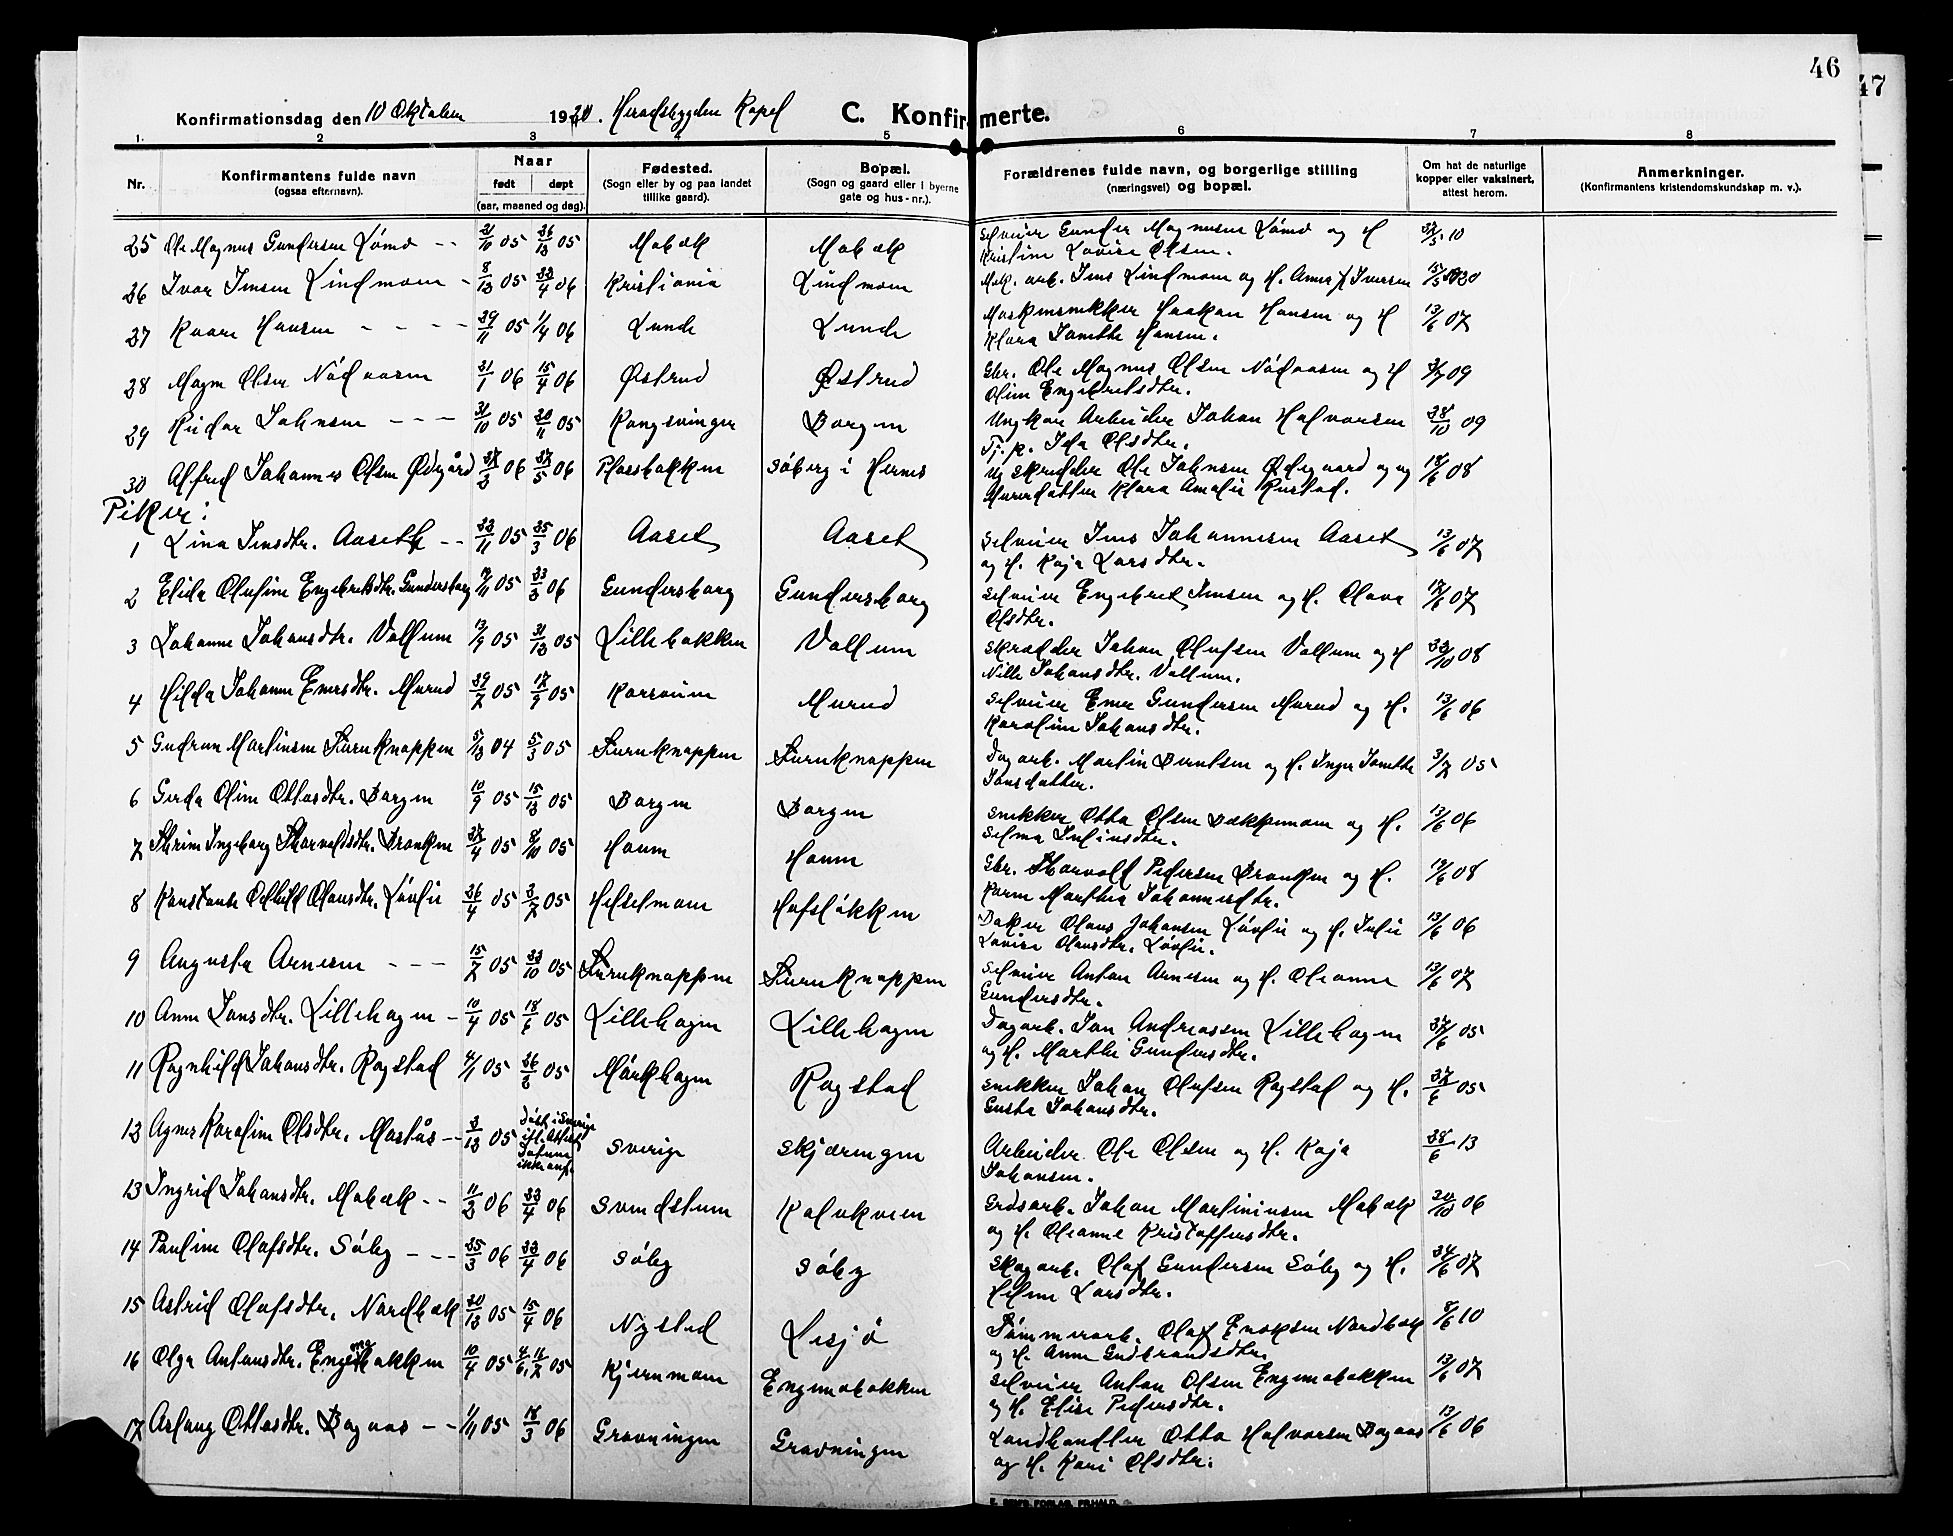 46
47
Konfirmationsdag den 10 Oktober 1920. Heradsbygden Kapel C. Konfirmerte.
1. 2 3 4 5 6 7 8
Nr. Konfirmantens fulde navn (ogsaa efternavn). Naar født døpt (aar, maaned og dag). Fødested. (Sogn eller by og paa landet tillike gaard). Bopæl. (Sogn og gaard eller i byerne gate og hus-nr.). Forældrenes fulde navn, og borgerlige stilling (næringsvei) og bopæl. Om hat de naturlige kopper eller vaksinert, attest herom. Anmerkninger. (Konfirmantens kristendomskundskap m. v.).
25 Ole Magnus Gundersen Lømo -- 21/10 05 26/12 05 Mobæk Mobæk Selveier Gunder Magnusen Lømo og H
Kristine Lovise Olsen. 10
26 Ivar Jensen Lindmoen - 8/12 05 22/4 06 Kristiania Lindmoen Mek. arb. Jens Lindmoen og H. Anne Iversen 15/5 1920
27 Kaare Hansen ---- 29/11 05 1/4 06 Lunde Lunde Maskinsnekker Haakon Hansen og H 13/6 07
Klara Janette Hansen.
28 Magne Olsen Nödaasen 21/1 06 15/4 06 Østrud Østrud Gbr. Ole Magnus Olsen Nödaasen og H 09
Oline Engebretsdtr.
29 Reidar Johnsen --- 31/10 05 20/11 05 Kongsvinger Borgen Ungkar Arbeider Johan Halvorsen 28/10 09
Tj. p. Ida Olsdtr.
30 Alfred Johannes Olsen Ødegård 27/2 06 27/5 06 Plassbakken Søberg i Hernes Ug Skredder Ole Johnsen Ødegaard og ug 18/6 08
Murerdatter Klara Amalie Rustad.
Piker:
1 Lina Jensdtr. Aaseth -- 22/11 05 25/3 06 Aaset Aaset Selveier Jens Johannesen Aaset 13/6 07
og H. Kaja Larsdtr.
2 Elida Olufine Engebretsdtr. Gundersborg 05 06 Gundersborg Gundersborg Selveier Engebret Jensen og H. Olava 07
Olsdtr.
3 Johanne Johansdtr. Vollum 13/9 05 31/12 05 Lillebakken Vollum Skredder Johan Olufsen Vollum og H 22/10 08
Nille Johansdtr. Vollum.
4 Hilda Johanne Enersdtr. Murud 29/7 05 17/9 05 Murud Selveier Ener Gundersen Murud og H. 13/6 06
Karoline Johansdtr.
5 Gudrun Martinsen Furuknappen 5/12 04 5/3 05 Furuknappen Furuknappen Dagarb. Martin Berntsen og H. Inger Janette 3/7 05
Jonsdatter.
6 Gerda Oline Ottosdtr. Borgen 10/9 05 15/12 05 Borgen Borgen Snekker Otto Olsen Bekkemoen og H. 13/6 06
Selma Julinsdtr.
7 Thrine Ingeborg Thorvaldsdtr. Bronken 27/4 05 8/10 05 Houm Houm Gbr. Thorvald Pedersen Bronken og H. 08
Karen Marthea Johannesdtr.
8 Konstanse Othild Olausdtr. Lövlie 26/4 05 2/7 05 Helselmoen Hofslökken Baker Olaus Johansen Lövlie og H. Julie 13/6 06
Lovise Olausdtr. Lövlie.
9 Augusta Arnesen --- 15/7 05 22/10 05 Furuknappen Furuknappen Selveier Anton Arnesen og H. Oleanne 13/6 07
Gundersdtr.
10 Anne Jonsdtr. Lillehagen - 10/4 05 18/6 05 Lillehagen Lillehagen Dagarb. Jon Andreassen Lillehagen 27/6 05
og H. Marthe Gundersdtr.
11 Ragnhild Johansdtr. Rogstad 4/1 05 26/2 05 Mörkhagen Rogstad Snekker Johan Olufsen Rogstad og H. 27/6 05
Gusta Johansdtr.
12 Agnes Karoline Olsdtr. Mostås -- 2/12 05 Døbt i Sverige ifl. Attest Datum ikke anf. Sverige Skjæringen Arbeider Ole Olsen og H. Kaja 28/6 13
Johansen.
13 Ingrid Johansdtr. Mobæk -- 11/2 06 22/4 06 Svendstuen Kalvkveen Grdsarb. Johan Martininsen Mobæk 20/10 06
og H. Oleanne Kristoffersdtr.
14 Pauline Olafsdtr. Söby --- 25/3 06 22/4 06 Söby Söby Skogarb. Olaf Gundersen Söby og H. 24/6 07
Helene Larsdtr.
15 Astrid Olafsdtr. Nordbæk 20/12 05 15/4 06 Nysted Lisjö Tömmerarb. Olaf Enoksen Nordbæk 8/6 10
og H. Anne Gudbrandsdtr.
16 Olga Antonsdtr. Engemobakken 10/4 05 4/6, 16/7 05 Kjernmoen Engemobakken Selveier Anton Olsen Engemobakken 13/6 07
og H. Elise Pedersdtr.
17 Aslaug Ottosdtr. Bagaas -- 1/11 05 18/3 06 Gravningen Gravningen Landhandler Otto Halvorsen Bagaas 13/6 06
og H. Kari Olsdtr.